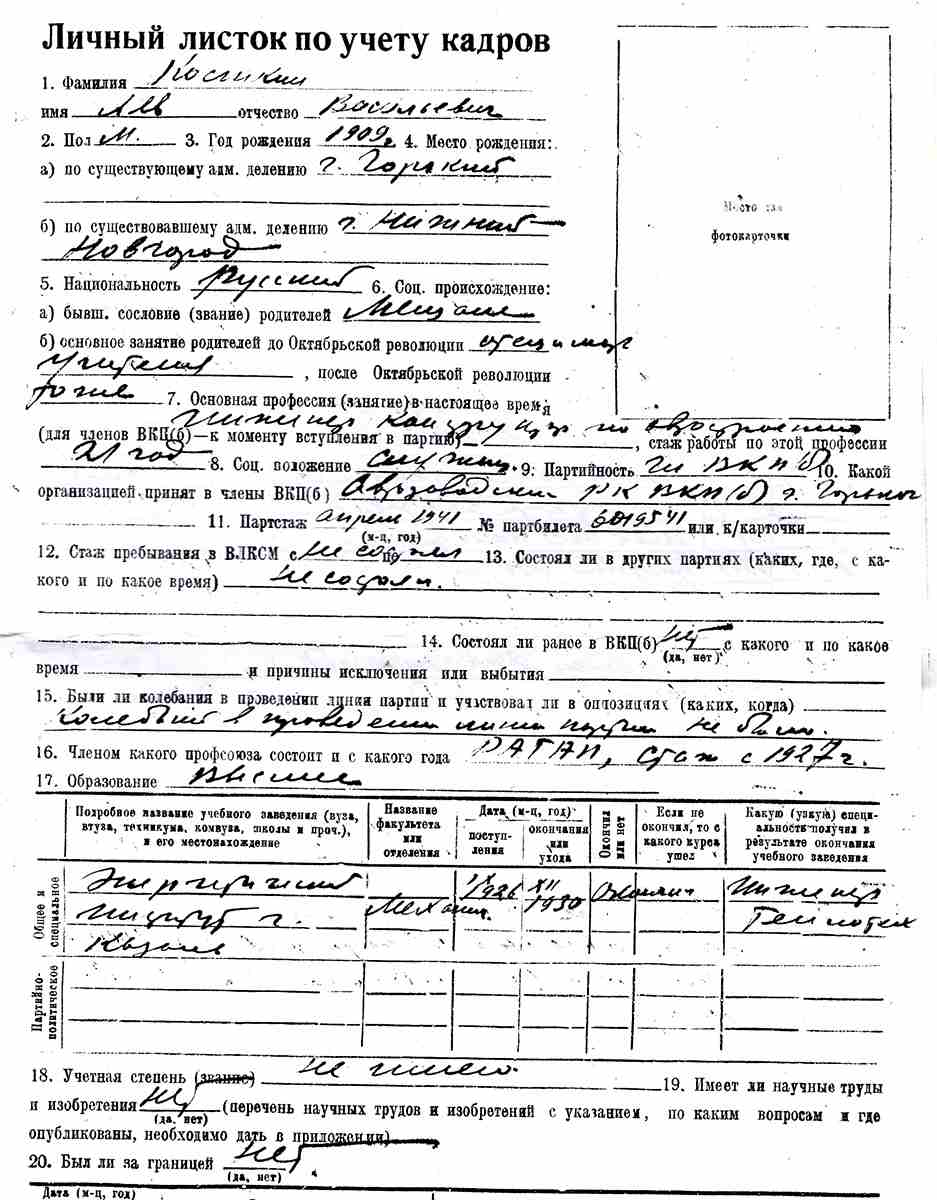 Личный листок по учету кадров
1. Фамилия Косткин
имя Лев отчество Васильевич
2. Пол М. 3. Год рождения 1909г. 4. Место рождения:
а) по существующему адм. делению г. Горький
б) по существовавшему адм. делению г. Нижний
Новгород
Место для
фотокарточки
5. Национальность Русский 6. Соц. происхождение:
а) бывш. сословие (звание) родителей Мещане
б) основное занятие родителей до Октябрьской революции отец и мать
учителя, после Октябрьской революции
тоже 7. Основная профессия (занятие) в настоящее время
Инженер конструктор по
(для членов ВКП(б)—к моменту вступления в партию) , стаж работы по этой профессии
21 год 8. Соц. положение служащ. 9. Партийность чл ВКП(б) 10. Какой
организацией принят в члены ВКП(б) Автозаводским РК ВКП(б) г. Горького
11. Партстаж апрель 1941 № партбилета 6019541 или к/карточки
(м-ц, год)
12. Стаж пребывания в ВЛКСМ с по не состоял 13. Состоял ли в других партиях (каких, где, с ка-
кого и по какое время) не состоял.
14. Состоял ли ранее в ВКП(б) нет с какого и по какое
(да, нет)
время и причины исключения или выбытия
15. Были ли колебания в проведении линии партии и участвовал ли в оппозициях (каких, когда)
Колебаний в проведении линии партии не было.
16. Членом какого профсоюза состоит и с какого года стаж с 1927г.
17. Образование Высшее
Подробное название учебного заведения (вуза, втуза, техникума, комвуза, школы и проч.), и его местонахождение
Название факультета или отделения
Дата (м-ц, год)
поступ-
ления
окончания или ухода
Окончил или нет
Если не окончил, то с какого курса ушел
Какую (узкую) специ-
альность получил в результате окончания учебного заведения
Общее и специальное
Энергетический IX 1926 XII 1930 Окончил Инженер
институт г. Механич. Теплотех
Казань
Партийно-
политическое
18. Учетная степень (звание) не имею. 19. Имеет ли научные труды
и изобретения нет (перечень научных трудов и изобретений с указанием, по каким вопросам и где
(да, нет)
опубликованы, необходимо дать в приложении)
20. Был ли за границей нет
(да, нет)
Дата (м-ц, год)